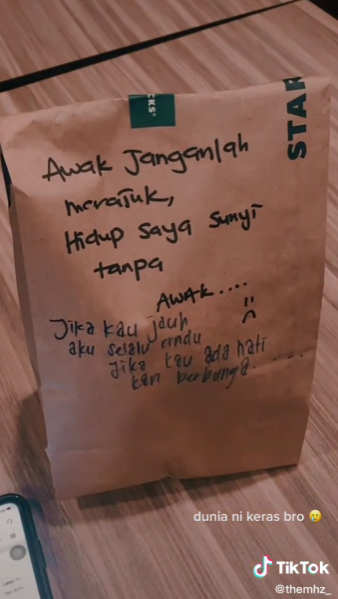 CKS®
STAR
Awak Janganlah
merajuk,
Hidup saya sunyi
tanpa
AWAK....
:(
Jika kau jauh
aku selalu rindu
Jika kau ada hati
kan berbunga.....
dunia ni keras bro 🥲
TikTok
@themhz_